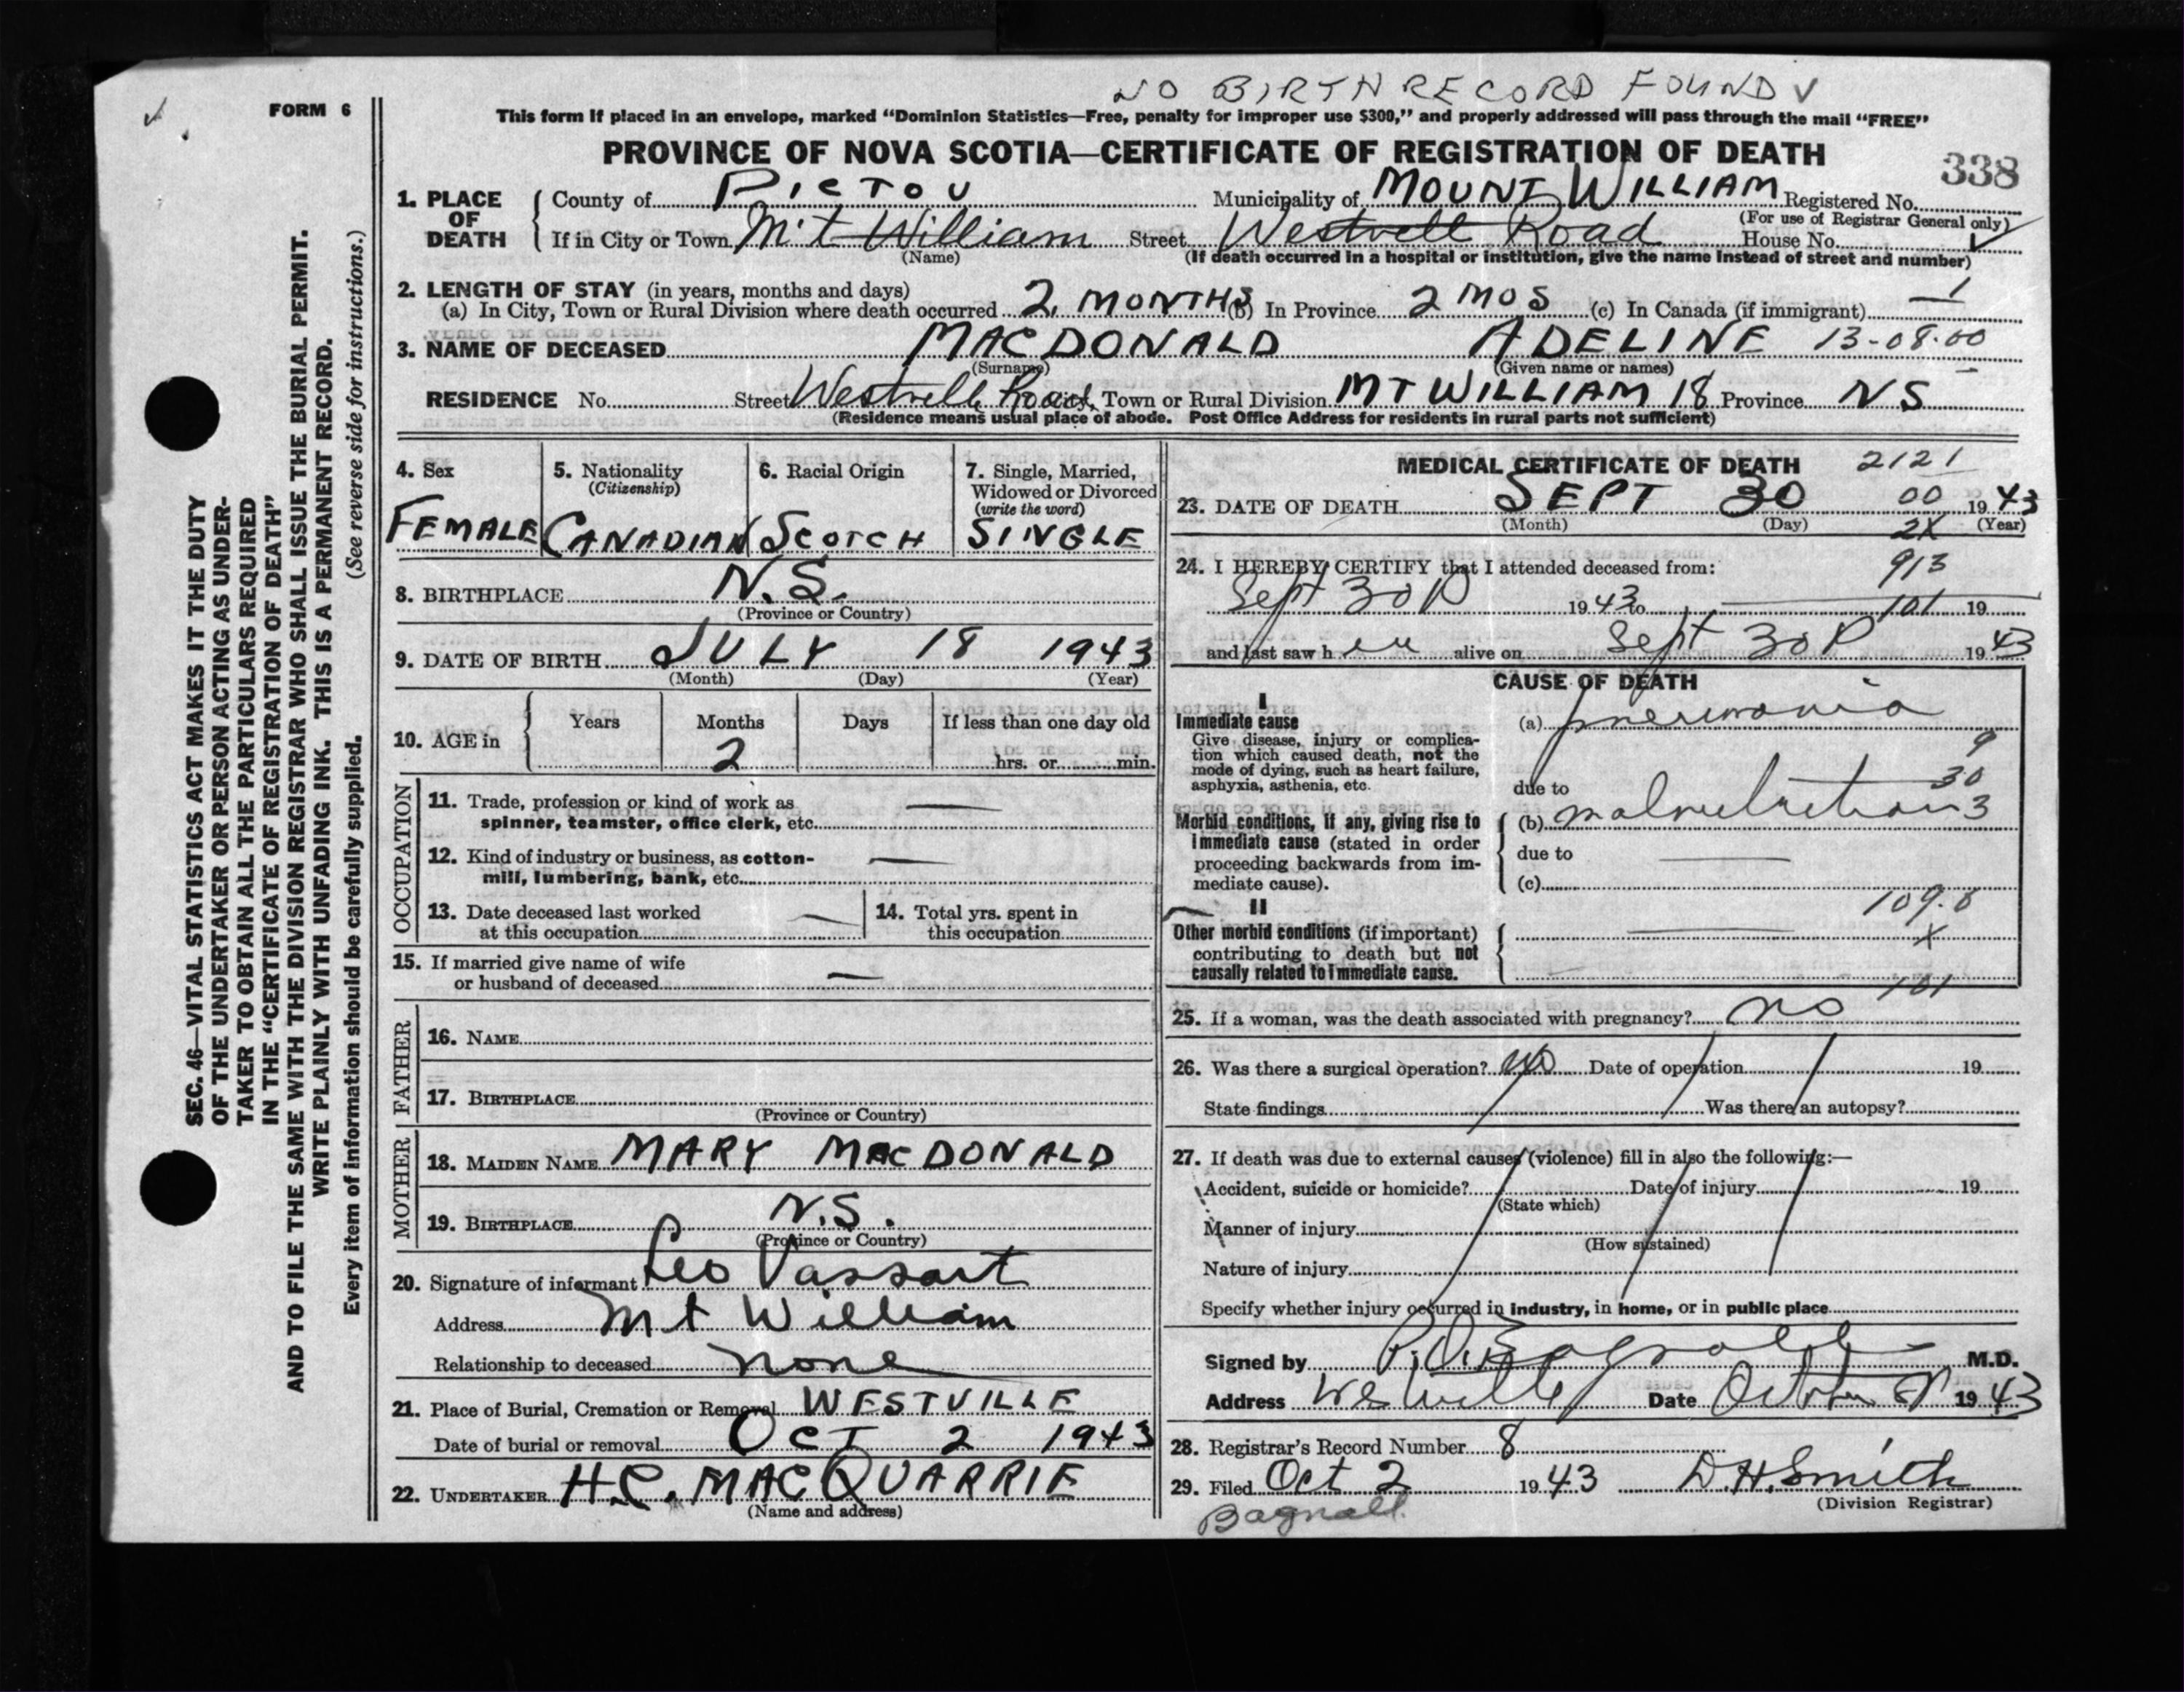 NO BIRTH RECORD FOUND √
FORM 6
This form if placed in an envelope, marked "Dominion Statistics—Free, penalty for improper use $300," and properly addressed will pass through the mail "FREE"
PROVINCE OF NOVA SCOTIA—CERTIFICATE OF REGISTRATION OF DEATH
338
1. PLACE OF DEATH
County of PICTOU Municipality of MOUNT WILLIAM Registered No.
(For use of Registrar General only)
If in City or Town M't William Street Westvill Road House No.
(Name) (If death occurred in a hospital or institution, give the name instead of street and number)
2. LENGTH OF STAY (in years, months and days)
(a) In City, Town or Rural Division where death occurred 2 MONTHS (b) In Province 2 MOS (c) In Canada (if immigrant) —
3. NAME OF DECEASED MACDONALD ADELINE 13-08-00
(Surname) (Given name or names)
RESIDENCE No. Street Westville Road, Town or Rural Division MT WILLIAM 18 Province NS
(Residence means usual place of abode. Post Office Address for residents in rural parts not sufficient)
4. Sex
FEMALE
5. Nationality
(Citizenship)
CANADIAN
6. Racial Origin
SCOTCH
7. Single, Married,
Widowed or Divorced
(write the word)
SINGLE
8. BIRTHPLACE N.S.
(Province or Country)
9. DATE OF BIRTH JULY 18 1943
(Month) (Day) (Year)
10. AGE in Years Months Days If less than one day old
2 hrs. or min.
OCCUPATION
11. Trade, profession or kind of work as —
spinner, teamster, office clerk, etc.
12. Kind of industry or business, as cotton- —
mill, lumbering, bank, etc.
13. Date deceased last worked —
at this occupation
14. Total yrs. spent in
this occupation
15. If married give name of wife —
or husband of deceased
FATHER
16. NAME
17. BIRTHPLACE
(Province or Country)
MOTHER
18. MAIDEN NAME MARY MACDONALD
19. BIRTHPLACE N.S.
(Province or Country)
20. Signature of informant Leo Vassart
Address Mt William
Relationship to deceased none
21. Place of Burial, Cremation or Removal WESTVILLE
Date of burial or removal OCT 2 1943
22. UNDERTAKER H.C. MACQUARRIE
(Name and address)
MEDICAL CERTIFICATE OF DEATH 2121
23. DATE OF DEATH SEPT 30 00 1943
(Month) (Day) 2X (Year)
24. I HEREBY CERTIFY that I attended deceased from: 913
Sept 30 1943 to 101 19
and last saw h er alive on Sept 30 1943
CAUSE OF DEATH
I
Immediate cause
Give disease, injury or complica-
tion which caused death, not the
mode of dying, such as heart failure,
asphyxia, asthenia, etc.
(a) pneumonia
9
due to 30
Morbid conditions, if any, giving rise to
immediate cause (stated in order
proceeding backwards from im-
mediate cause).
(b) malnutrition 3
due to —
(c)
109.0
II
Other morbid conditions (if important)
contributing to death but not
causally related to immediate cause.
— X
101
25. If a woman, was the death associated with pregnancy? no
26. Was there a surgical operation? no Date of operation 19
State findings Was there an autopsy?
27. If death was due to external causes (violence) fill in also the following:—
Accident, suicide or homicide? Date of injury 19
(State which)
Manner of injury
(How sustained)
Nature of injury
Specify whether injury occurred in industry, in home, or in public place
Signed by Bagnall M.D.
Address Westville Date October 1943
28. Registrar's Record Number 8
29. Filed Oct 2 1943 D.H. Smith
(Division Registrar)
Bagnall.
SEC. 46—VITAL STATISTICS ACT MAKES IT THE DUTY
OF THE UNDERTAKER OR PERSON ACTING AS UNDER-
TAKER TO OBTAIN ALL THE PARTICULARS REQUIRED
IN THE "CERTIFICATE OF REGISTRATION OF DEATH"
AND TO FILE THE SAME WITH THE DIVISION REGISTRAR WHO SHALL ISSUE THE BURIAL PERMIT.
WRITE PLAINLY WITH UNFADING INK. THIS IS A PERMANENT RECORD.
Every item of information should be carefully supplied. (See reverse side for instructions.)